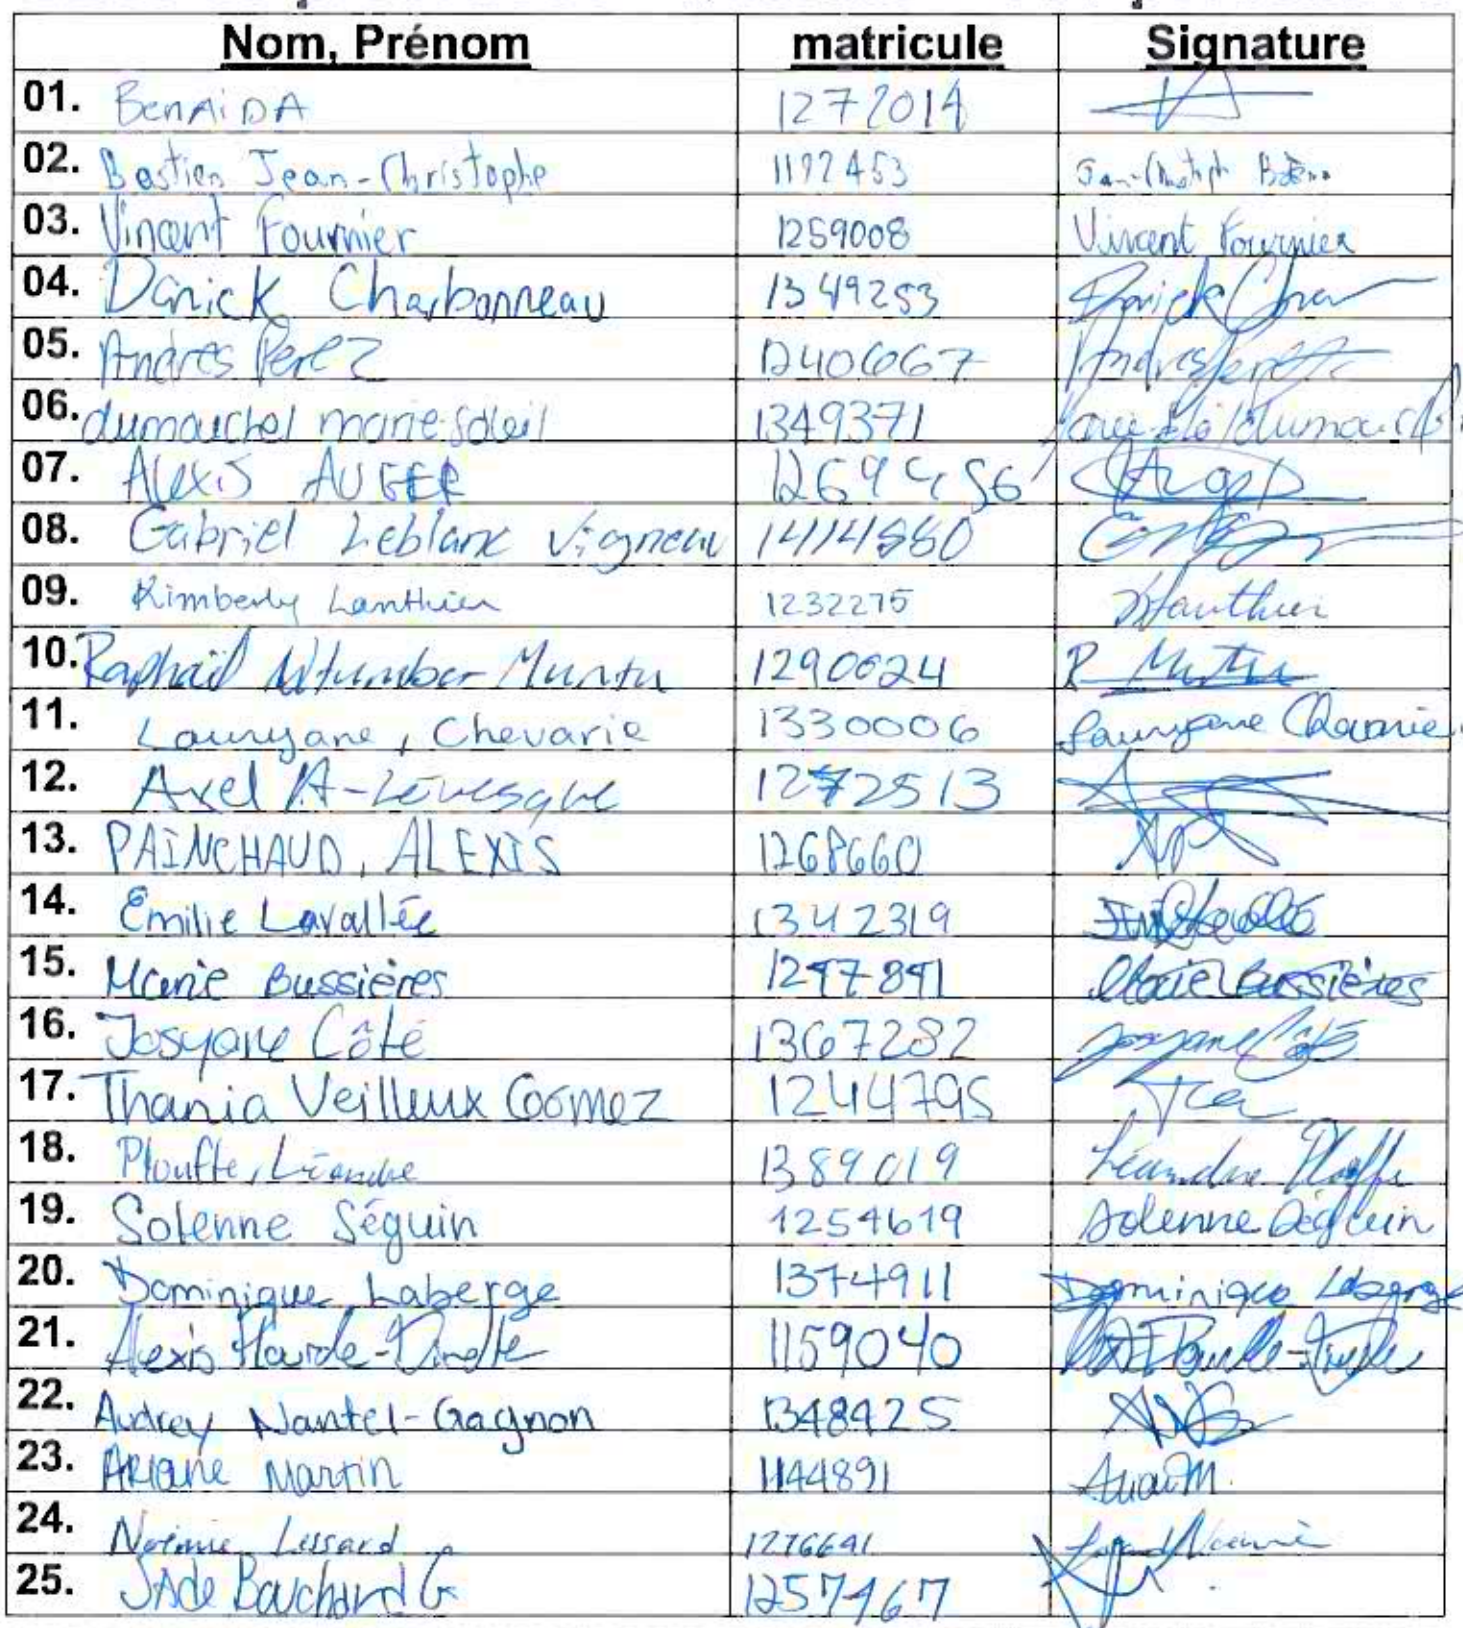 Nom, Prénom matricule Signature
01. BenAiDA 1272014
02. Bastien Jean-Christophe 1192453
03. Vincent Fournier 1259008 Vincent Fournier
04. Danick Charbonneau 1349253 Danick
05. Andres Perez 1240667
06. dumouchel marie-soleil 1349371
07. ALexis AUGER
08. Gabriel Leblanc Vigneau
09. Kimberly Lanthier 1232275
10. Raphaël Muntu 1290624 R
11. Lauryane, Chevarie 1330006 Lauryane Chevarie
12. Axel A-Lévesque 1272513
13. PAINCHAUD, ALEXIS 1268660
14. Emilie Lavallée 1342319
15. Marie Bussières 1297891 Marie Bussières
16. Josyane Côté 1367282 Josyane Côté
17. Thania Veilleux Goomez 1244795
18. Plouffe, Léandre 1389019 Léandre Plouffe
19. Solenne Séguin 1254619 Solenne Séguin
20. Dominique Laberge 1374911 Dominique Laberge
21. Alexis 1159040
22. Audrey Nantel-Gagnon 1348425
23. Ariane Martin 1144891
24. Noémie Lessard 1276691
25. JAde Bouchard G 1257467